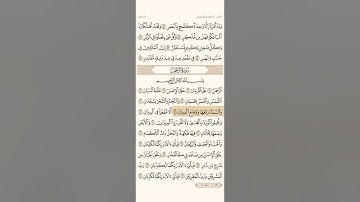 وَمَا أَمْرُنَا إِلَّا وَاحِدَةٌ كَلَمْحٍ بِالْبَصَرِ ۝ وَلَقَدْ أَهْلَكْنَا
أَشْيَاعَكُمْ فَهَلْ مِن مُّدَّكِرٍ ۝ وَكُلُّ شَيْءٍ فَعَلُوهُ فِي الزُّبُرِ ۝
وَكُلُّ صَغِيرٍ وَكَبِيرٍ مُّسْتَطَرٌ ۝ إِنَّ الْمُتَّقِينَ فِي
جَنَّاتٍ وَنَهَرٍ ۝ فِي مَقْعَدِ صِدْقٍ عِندَ مَلِيكٍ مُّقْتَدِرٍ ۝
سُورَةُ الرَّحْمَٰنِ
بِسْمِ اللَّهِ الرَّحْمَٰنِ الرَّحِيمِ
الرَّحْمَٰنُ ۝ عَلَّمَ الْقُرْآنَ ۝ خَلَقَ الْإِنسَانَ ۝ عَلَّمَهُ الْبَيَانَ ۝
الشَّمْسُ وَالْقَمَرُ بِحُسْبَانٍ ۝ وَالنَّجْمُ وَالشَّجَرُ يَسْجُدَانِ ۝
وَالسَّمَاءَ رَفَعَهَا وَوَضَعَ الْمِيزَانَ ۝ أَلَّا تَطْغَوْا فِي الْمِيزَانِ ۝
وَأَقِيمُوا الْوَزْنَ بِالْقِسْطِ وَلَا تُخْسِرُوا الْمِيزَانَ ۝ وَالْأَرْضَ
وَضَعَهَا لِلْأَنَامِ ۝ فِيهَا فَاكِهَةٌ وَالنَّخْلُ ذَاتُ الْأَكْمَامِ ۝
وَالْحَبُّ ذُو الْعَصْفِ وَالرَّيْحَانُ ۝ فَبِأَيِّ آلَاءِ رَبِّكُمَا تُكَذِّبَانِ ۝
خَلَقَ الْإِنسَانَ مِن صَلْصَالٍ كَالْفَخَّارِ ۝ وَخَلَقَ الْجَانَّ مِن
مَّارِجٍ مِّن نَّارٍ ۝ فَبِأَيِّ آلَاءِ رَبِّكُمَا تُكَذِّبَانِ ۝
رَبُّ الْمَشْرِقَيْنِ وَرَبُّ الْمَغْرِبَيْنِ ۝ فَبِأَيِّ آلَاءِ رَبِّكُمَا تُكَذِّبَانِ ۝